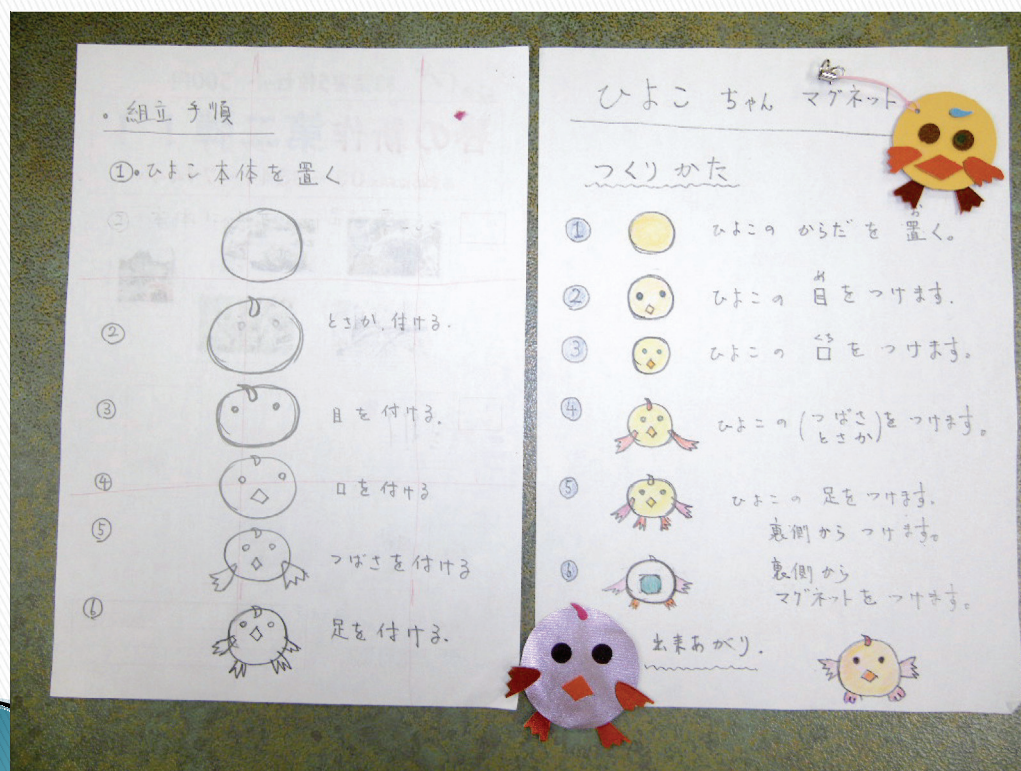 ・組立手順
①・ひよこ本体を置く
② とさか,付ける.
③ 目を付ける.
④ 口を付ける
⑤ つばさを付ける
⑥ 足を付ける.
ひよこちゃん マグネット
つくりかた
① ひよこの からだ を 置く。
お
② ひよこの 目 を つけます.
め
③ ひよこの 口 を つけます。
くち
④ ひよこの (つばさ とさか) を つけます。
⑤ ひよこの 足をつけます.
裏側から つけます。
⑥ 裏側から
マグネットを つけます。
出来あがり.